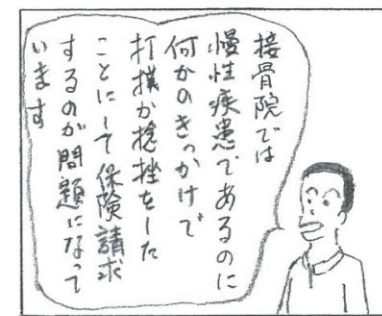 接骨院では
慢性疾患であるのに
何かのきっかけで
打撲か捻挫をした
ことにして保険請求
するのが問題になって
います